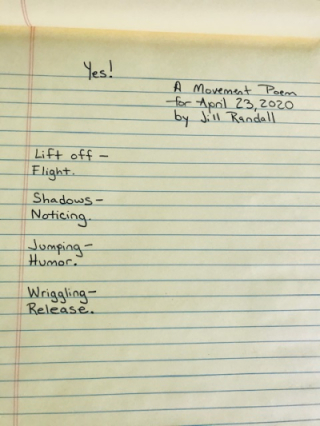 Yes!
A Movement Poem
for April 23, 2020
by Jill Randall
Lift off –
Flight.
Shadows –
Noticing.
Jumping –
Humor.
Wriggling –
Release.